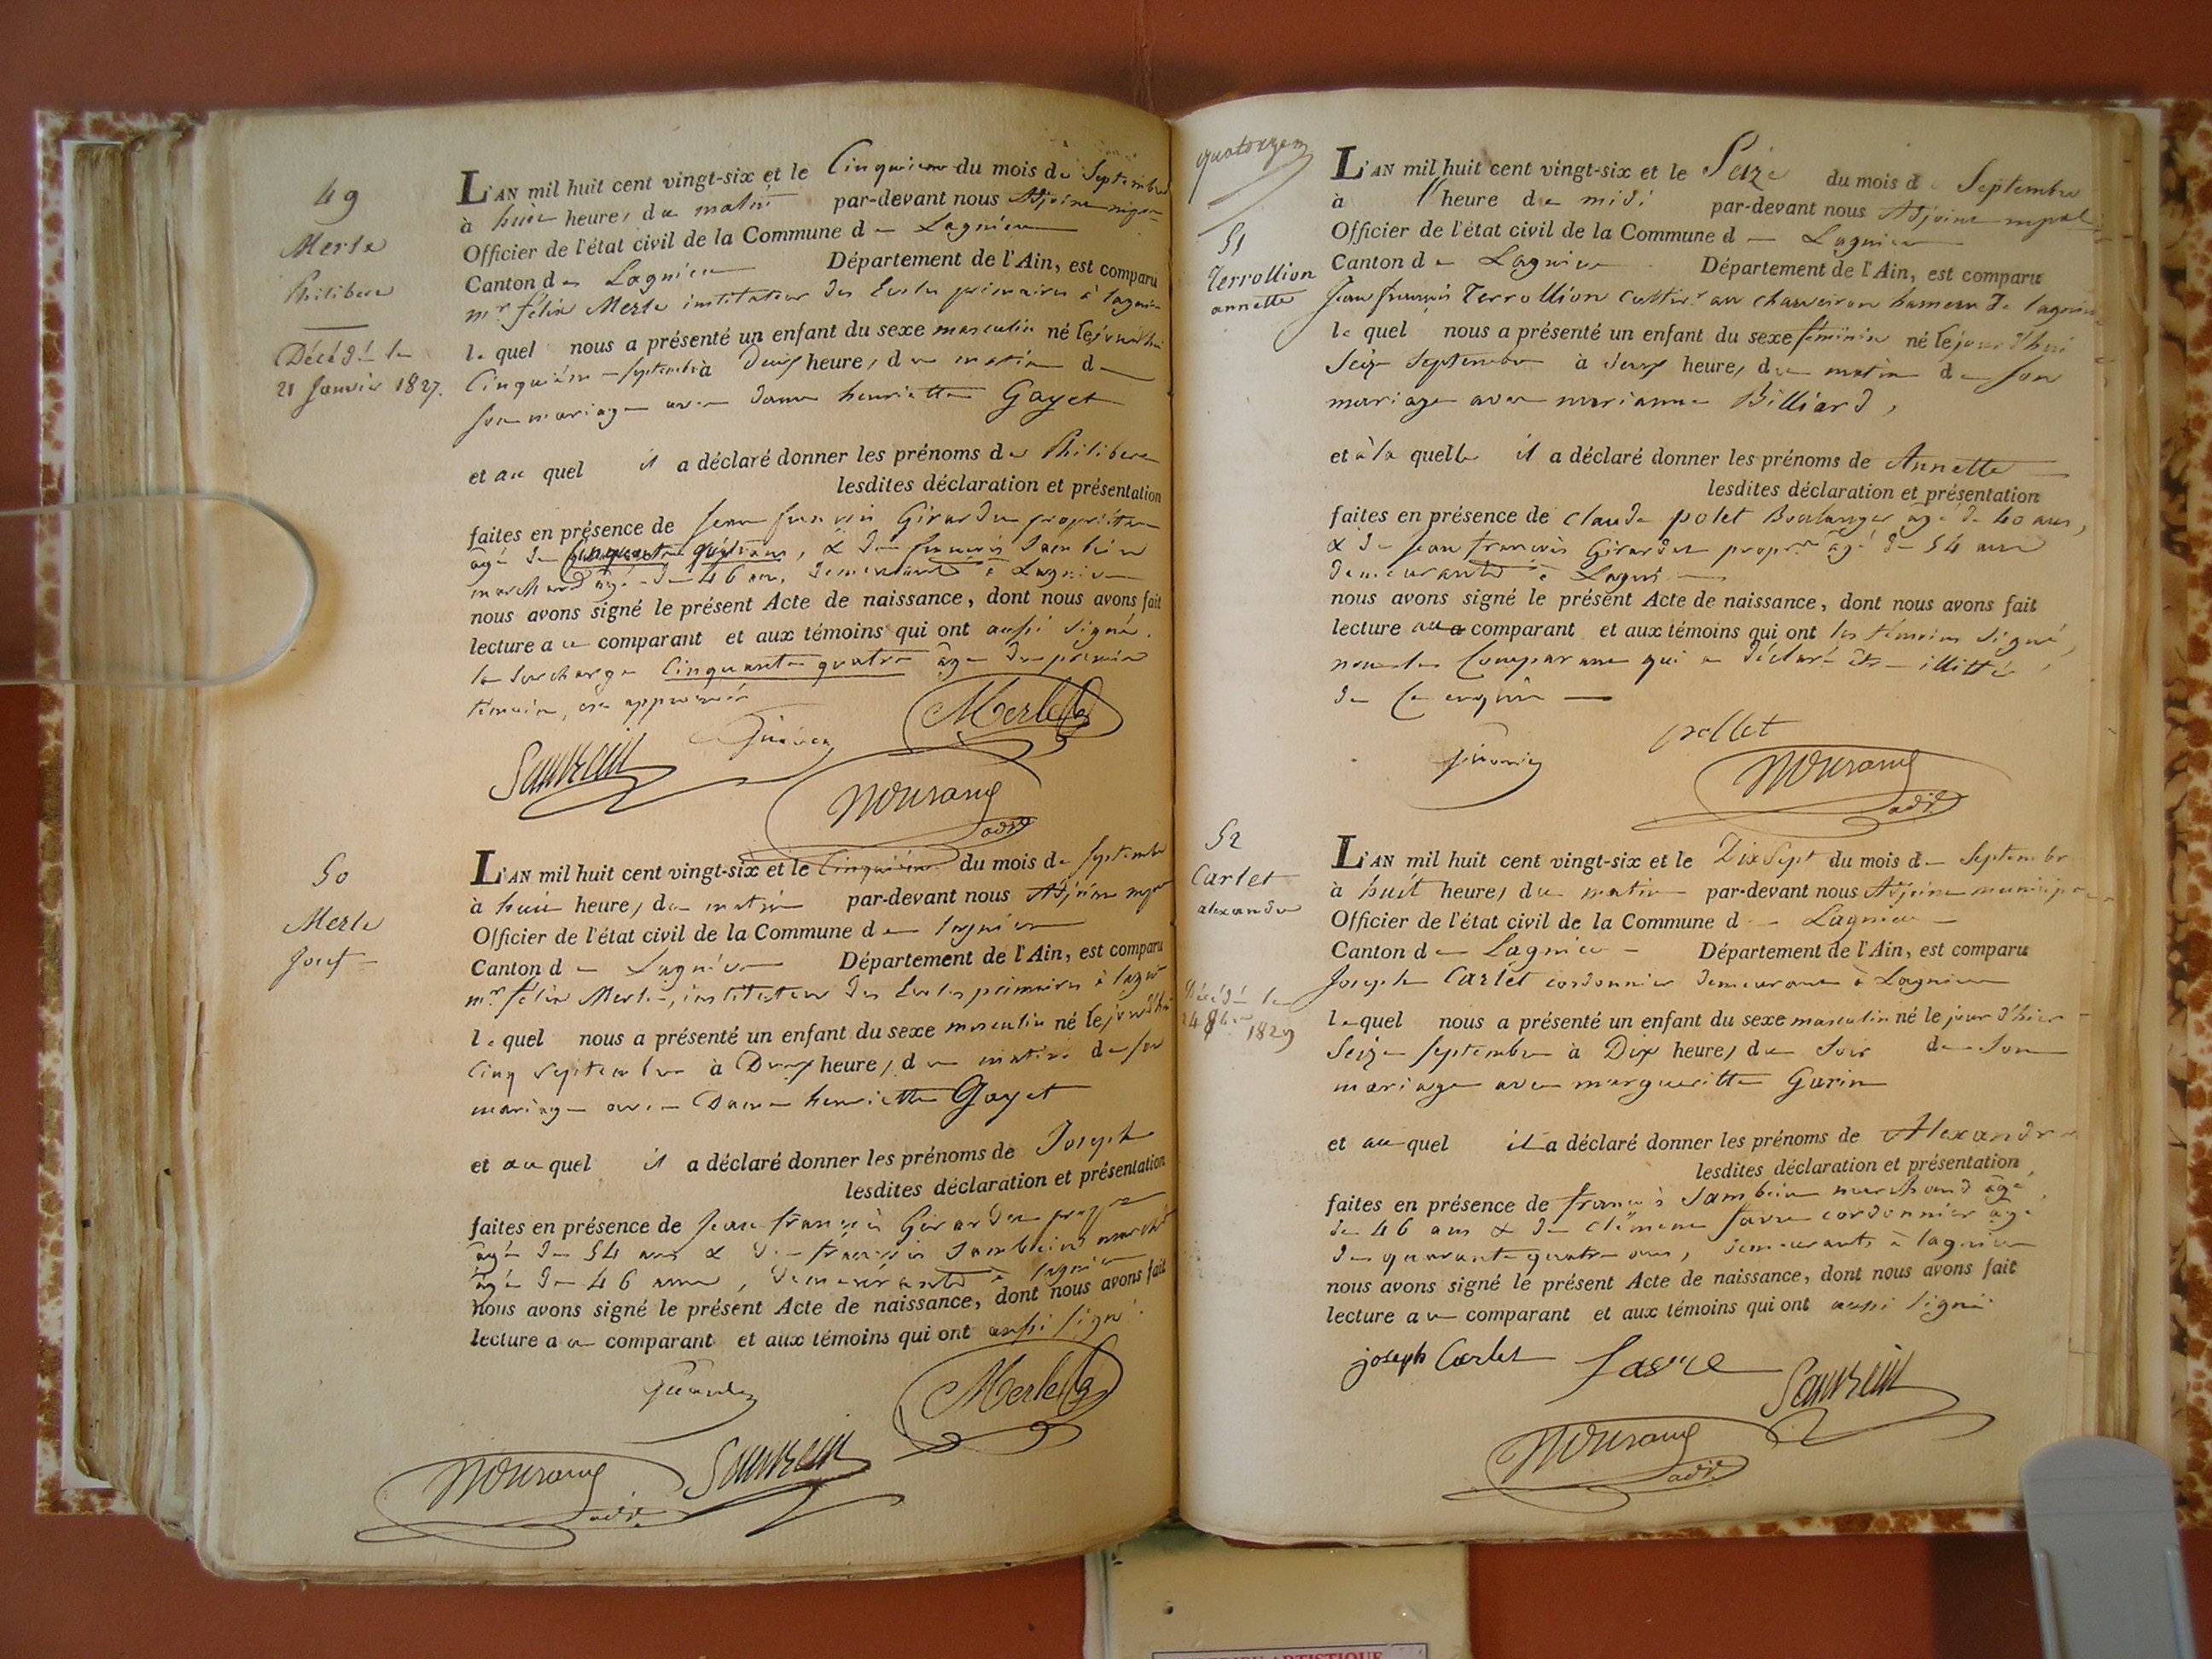 49
Merle
Philibert
Décédé le
21 Janvier 1827.
L'AN mil huit cent vingt-six et le Cinquieme du mois de Septembre
à huit heures du matin par-devant nous Adjoint
Officier de l'état civil de la Commune de Lagnieu
Canton de Lagnieu Département de l'Ain, est comparu
mr félix Merle instituteur des Ecoles primaires à lagnieu
lequel nous a présenté un enfant du sexe masculin né le jourd'hui
Cinquième septembre à Deux heures du matin de
son mariage avec dame henriette Gayet
et au quel il a déclaré donner les prénoms de Philibert
lesdites déclaration et présentation
faites en présence de Jean françois Girardet propriétaire
âgé de Cinquante quatre ans, & de françois
marchand âgé de 46 ans, demeurants à Lagnieu
nous avons signé le présent Acte de naissance, dont nous avons fait
lecture au comparant et aux témoins qui ont aussi signé.
la surcharge Cinquante quatre âge du premier
témoin, est approuvée
Merle
50
Merle
Josef
L'AN mil huit cent vingt-six et le Cinquième du mois de septembre
à huit heures du matin par-devant nous Adjoint
Officier de l'état civil de la Commune de lagnieu
Canton de Lagnieu Département de l'Ain, est comparu
mr félix Merle, instituteur des Ecoles primaires à lagnieu
lequel nous a présenté un enfant du sexe masculin né le jourd'hui
Cinq Septembre à Deux heures du matin de son
mariage avec Dame henriette Gayet
et au quel il a déclaré donner les prénoms de Joseph
lesdites déclaration et présentation
faites en présence de Jean françois Girardet propre
âgé de 54 ans & de françois marchd
âgé de 46 ans, demeurants à lagnieu
nous avons signé le présent Acte de naissance, dont nous avons fait
lecture au comparant et aux témoins qui ont aussi signé.
Merle
51
Terrollion
annette
L'AN mil huit cent vingt-six et le Seize du mois de Septembre
à heure de midi par-devant nous Adjoint mpal
Officier de l'état civil de la Commune de Lagnieu
Canton de Lagnieu Département de l'Ain, est comparu
Jean françois Terrollion cultivr au hameau de lagnieu
lequel nous a présenté un enfant du sexe féminin né le jourd'hui
Seize Septembre à deux heures du matin de son
mariage avec marianne Billiard,
et à la quelle il a déclaré donner les prénoms de Annette
lesdites déclaration et présentation
faites en présence de Claude polet Boulanger âgé de 40 ans,
& de Jean françois Girardet propre âgé de 54 ans
demeurants à Lagnieu
nous avons signé le présent Acte de naissance, dont nous avons fait
lecture au comparant et aux témoins qui ont les témoins signé,
non le Comparant qui a déclaré être illitté
de ce enquis
pollet
52
Carlet
alexandre
Décédé le
1829
L'AN mil huit cent vingt-six et le Dix Sept du mois de Septembre
à huit heures du matin par-devant nous Adjoint municipal
Officier de l'état civil de la Commune de Lagnieu
Canton de Lagnieu Département de l'Ain, est comparu
Joseph Carlet cordonnier demeurant à Lagnieu
lequel nous a présenté un enfant du sexe masculin né le jour d'hier
Seize septembre à Dix heures du Soir de son
mariage avec margueritte Garin
et au quel il a déclaré donner les prénoms de Alexandre
lesdites déclaration et présentation
faites en présence de françois marchand âgé
de 46 ans & de Clément favre cordonnier âgé
de quarante quatre ans, demeurants à lagnieu
nous avons signé le présent Acte de naissance, dont nous avons fait
lecture au comparant et aux témoins qui ont aussi signé
joseph Carlet favre